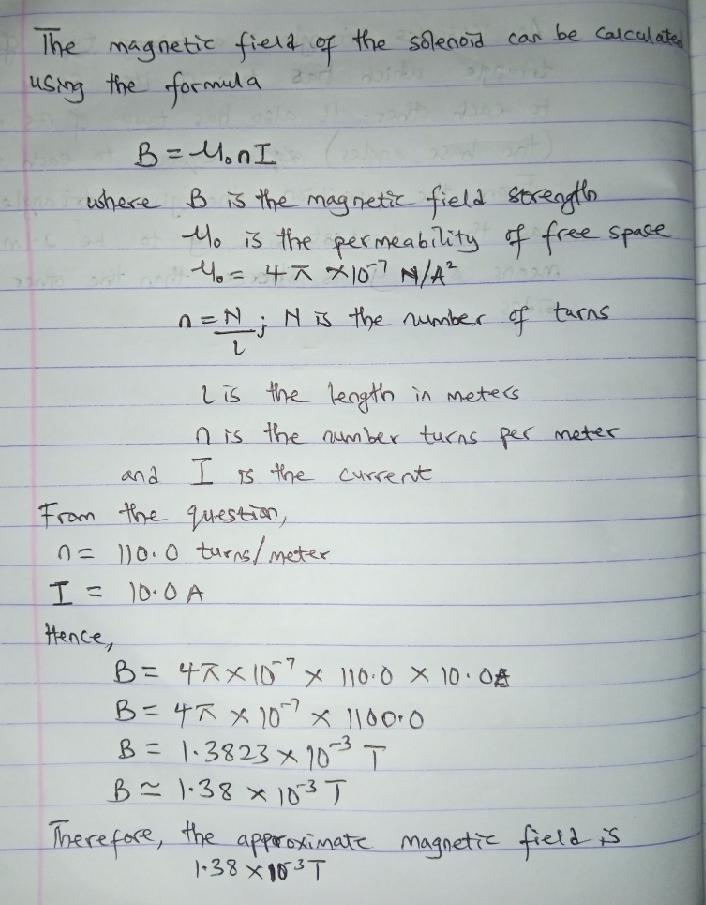 The magnetic field of the solenoid can be calculated
using the formula
B = μ₀nI
where B is the magnetic field strength
μ₀ is the permeability of free space
μ₀ = 4π × 10⁻⁷ N/A²
n = N/l ; N is the number of turns
l is the length in meters
n is the number turns per meter
and I is the current
From the question,
n = 110.0 turns/meter
I = 10.0 A
Hence,
B = 4π × 10⁻⁷ × 110.0 × 10.0
B = 4π × 10⁻⁷ × 1100.0
B = 1.3823 × 10⁻³ T
B ≃ 1.38 × 10⁻³ T
Therefore, the approximate magnetic field is
1.38 × 10⁻³ T